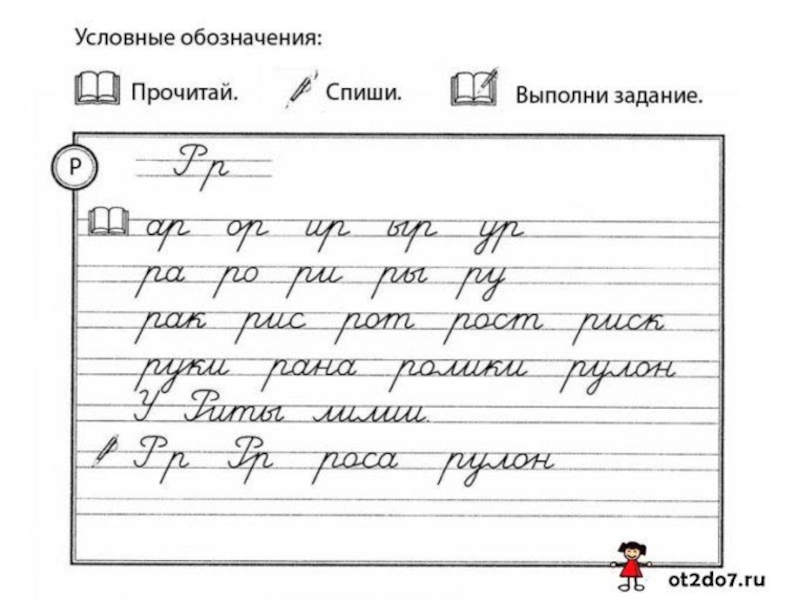 Условные обозначения:
Прочитай. Спиши. Выполни задание.
Р Рр
ар ор ир ыр ур
ра ро ри ры ру
рак рис рот рост риск
руки рана ролики рулон
У Риты лилии.
Рр Рр роса рулон
ot2do7.ru